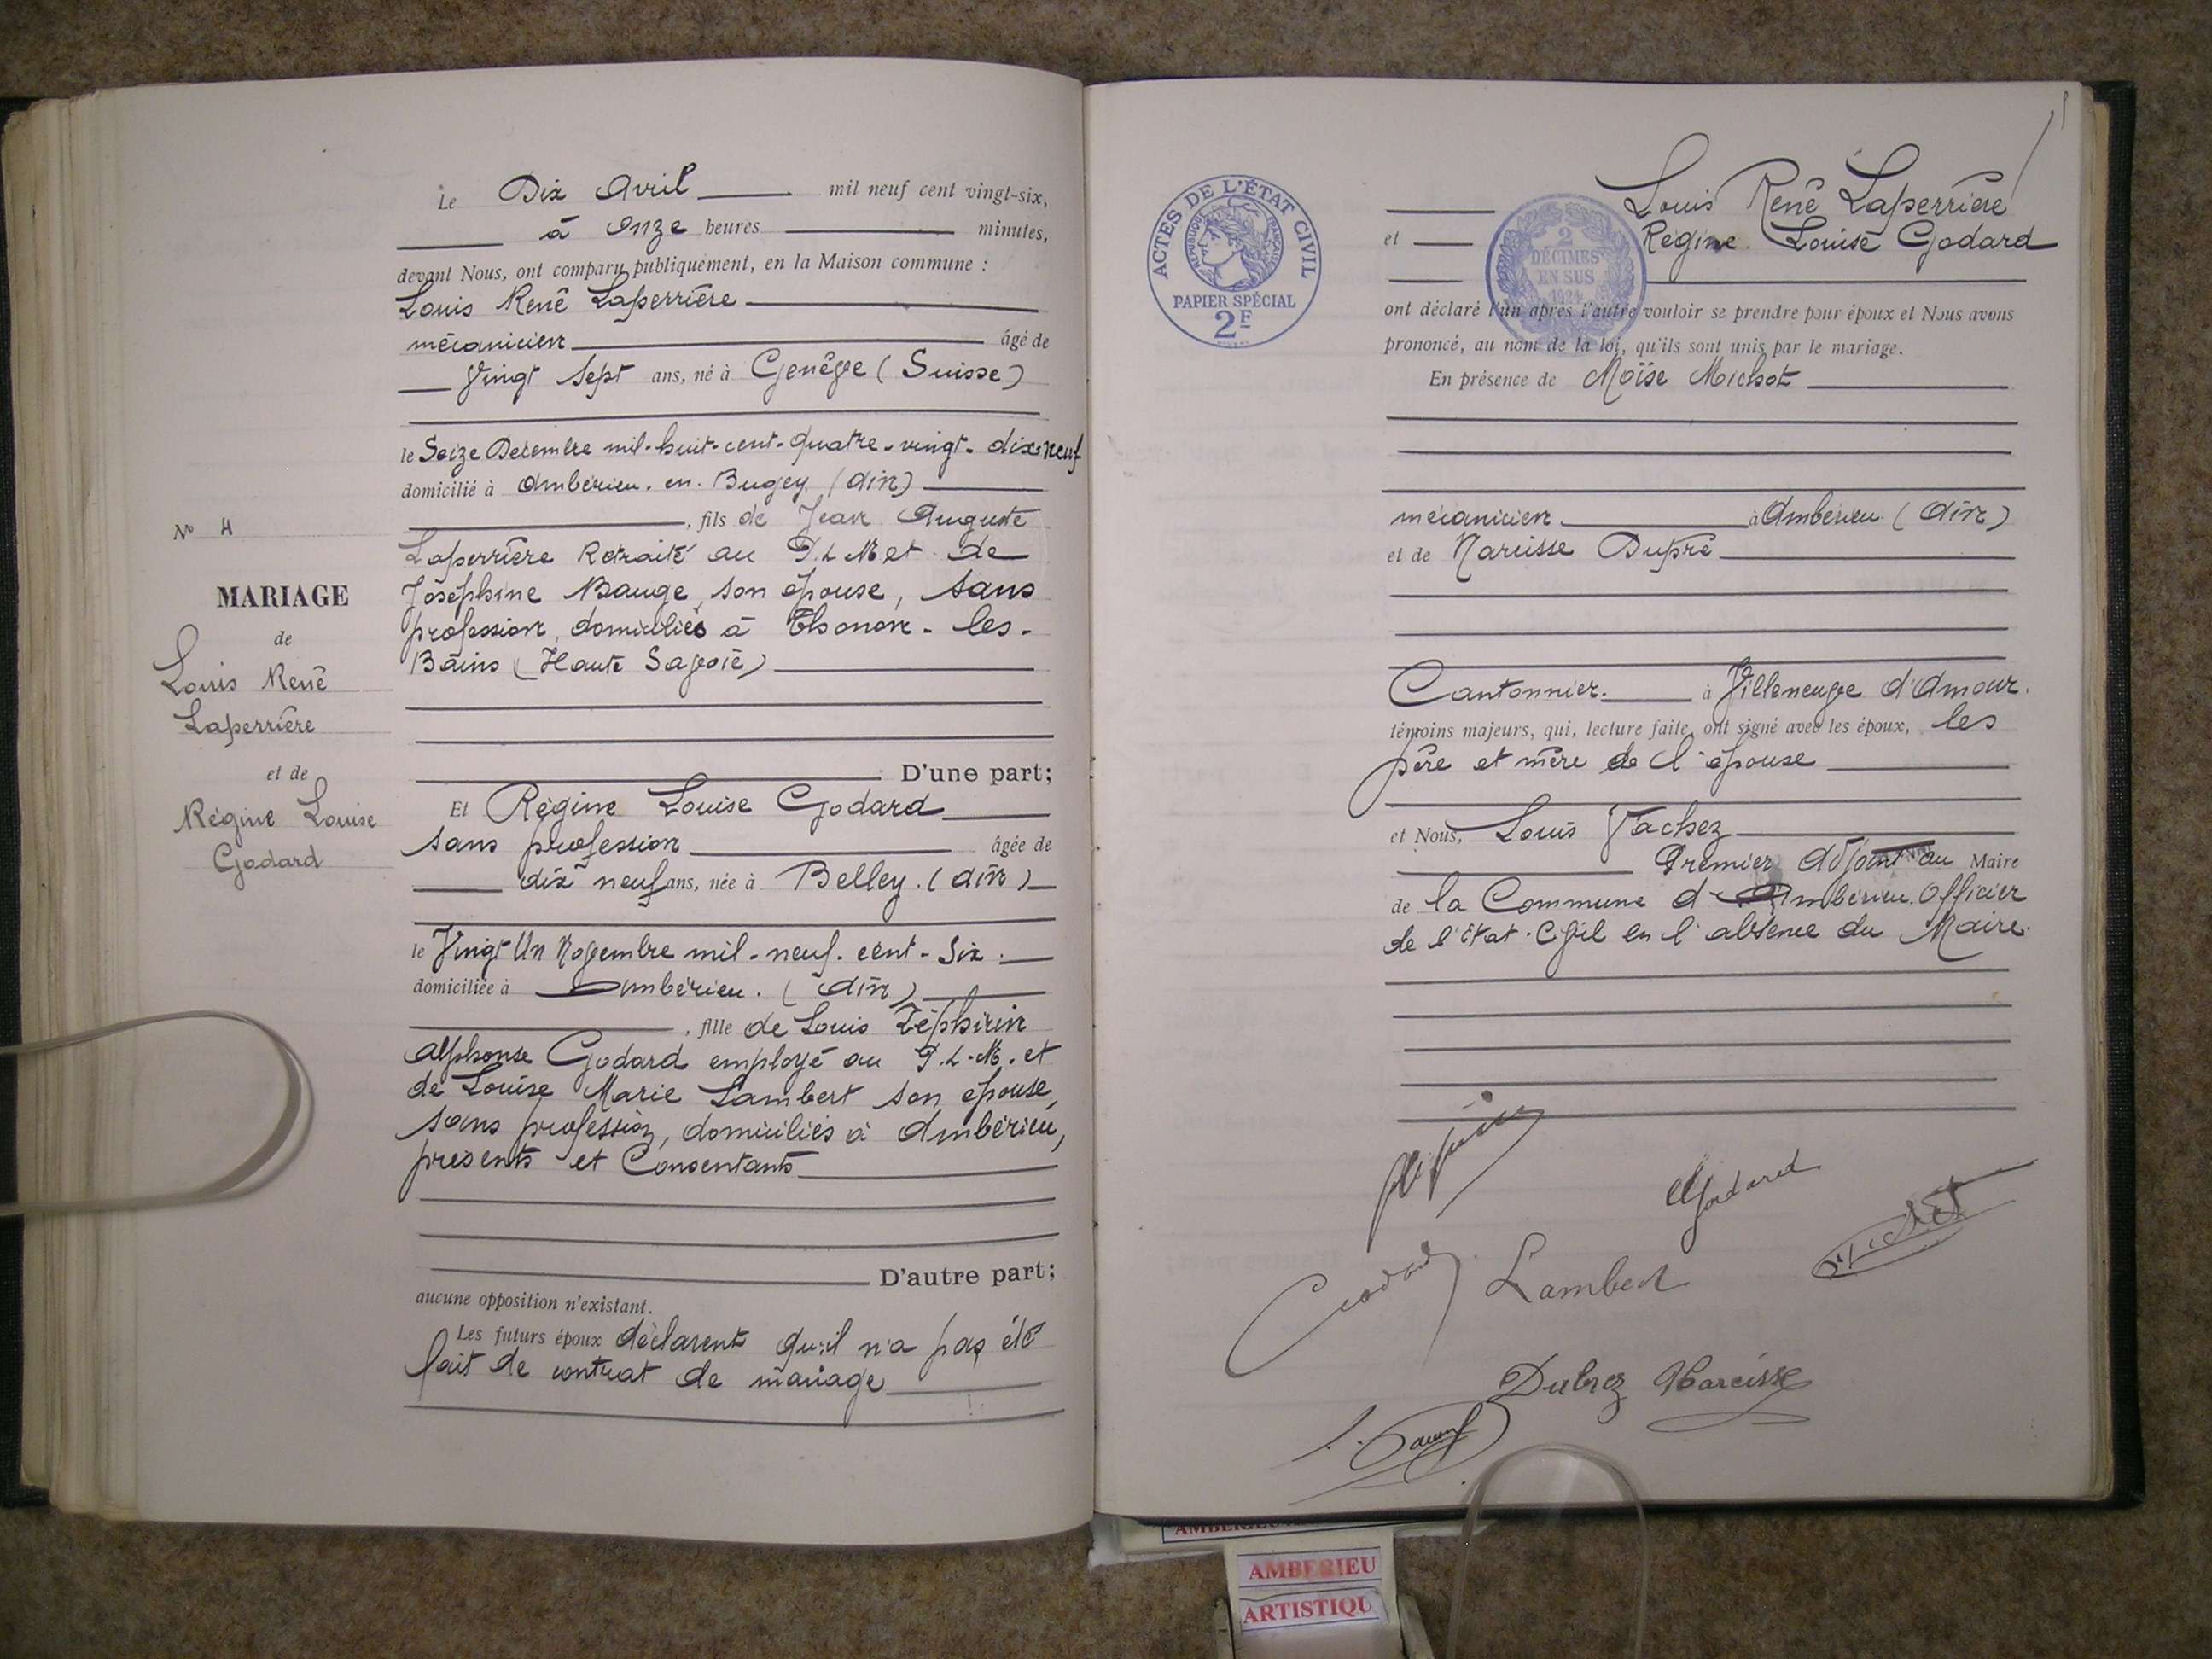 Le Dix Avril mil neuf cent vingt-six,
à Onze heures minutes,
devant Nous, ont comparu publiquement, en la Maison commune :
Louis René Laperrière
mécanicien âgé de
Vingt Sept ans, né à Genève (Suisse)
le Seize Décembre mil-huit-cent-quatre-vingt-dix-neuf
domicilié à Ambérieu. en. Bugey (Ain)
, fils de Jean Auguste
Laperrière Retraité au P.L.M et de
Joséphine Bauge, son épouse, sans
profession, domiciliés à Thonon-les-
Bains (Haute Savoie)
D'une part;
Et Régine Louise Godard
sans profession âgée de
dix neuf ans, née à Belley. (Ain)
le Vingt Un Novembre mil-neuf-cent-Six.
domiciliée à Ambérieu. (Ain)
, fille de Louis Zéphirin
Alphonse Godard employé au P.L.M. et
de Louise Marie Lambert son épouse,
sans profession, domiciliés à Ambérieu,
présents et Consentants
D'autre part;
aucune opposition n'existant.
Les futurs époux déclarent qu'il n'a pas été
fait de contrat de mariage
N° 4
MARIAGE
de
Louis René
Laperrière
et de
Régine Louise
Godard
ACTES DE L'ÉTAT CIVIL
RÉPUBLIQUE FRANÇAISE
PAPIER SPÉCIAL
2F
2
DÉCIMES
EN SUS
1921
Louis René Laperrière
et Régine Louise Godard
ont déclaré l'un après l'autre vouloir se prendre pour époux et Nous avons
prononcé, au nom de la loi, qu'ils sont unis par le mariage.
En présence de Moïse Michot
mécanicien à Ambérieu (Ain)
et de Narcisse Dupré
Cantonnier. à Villeneuve d'Amour.
témoins majeurs, qui, lecture faite, ont signé avec les époux, les
père et mère de l'épouse
et Nous, Louis Vachez
Premier Adjoint au Maire
de la Commune d'Ambérieu. Officier
de l'Etat-Civil en l'absence du Maire.
Godard
Godard Lambert
Michot
Dubrez Narcisse
AMBERIEU
ARTISTIQU